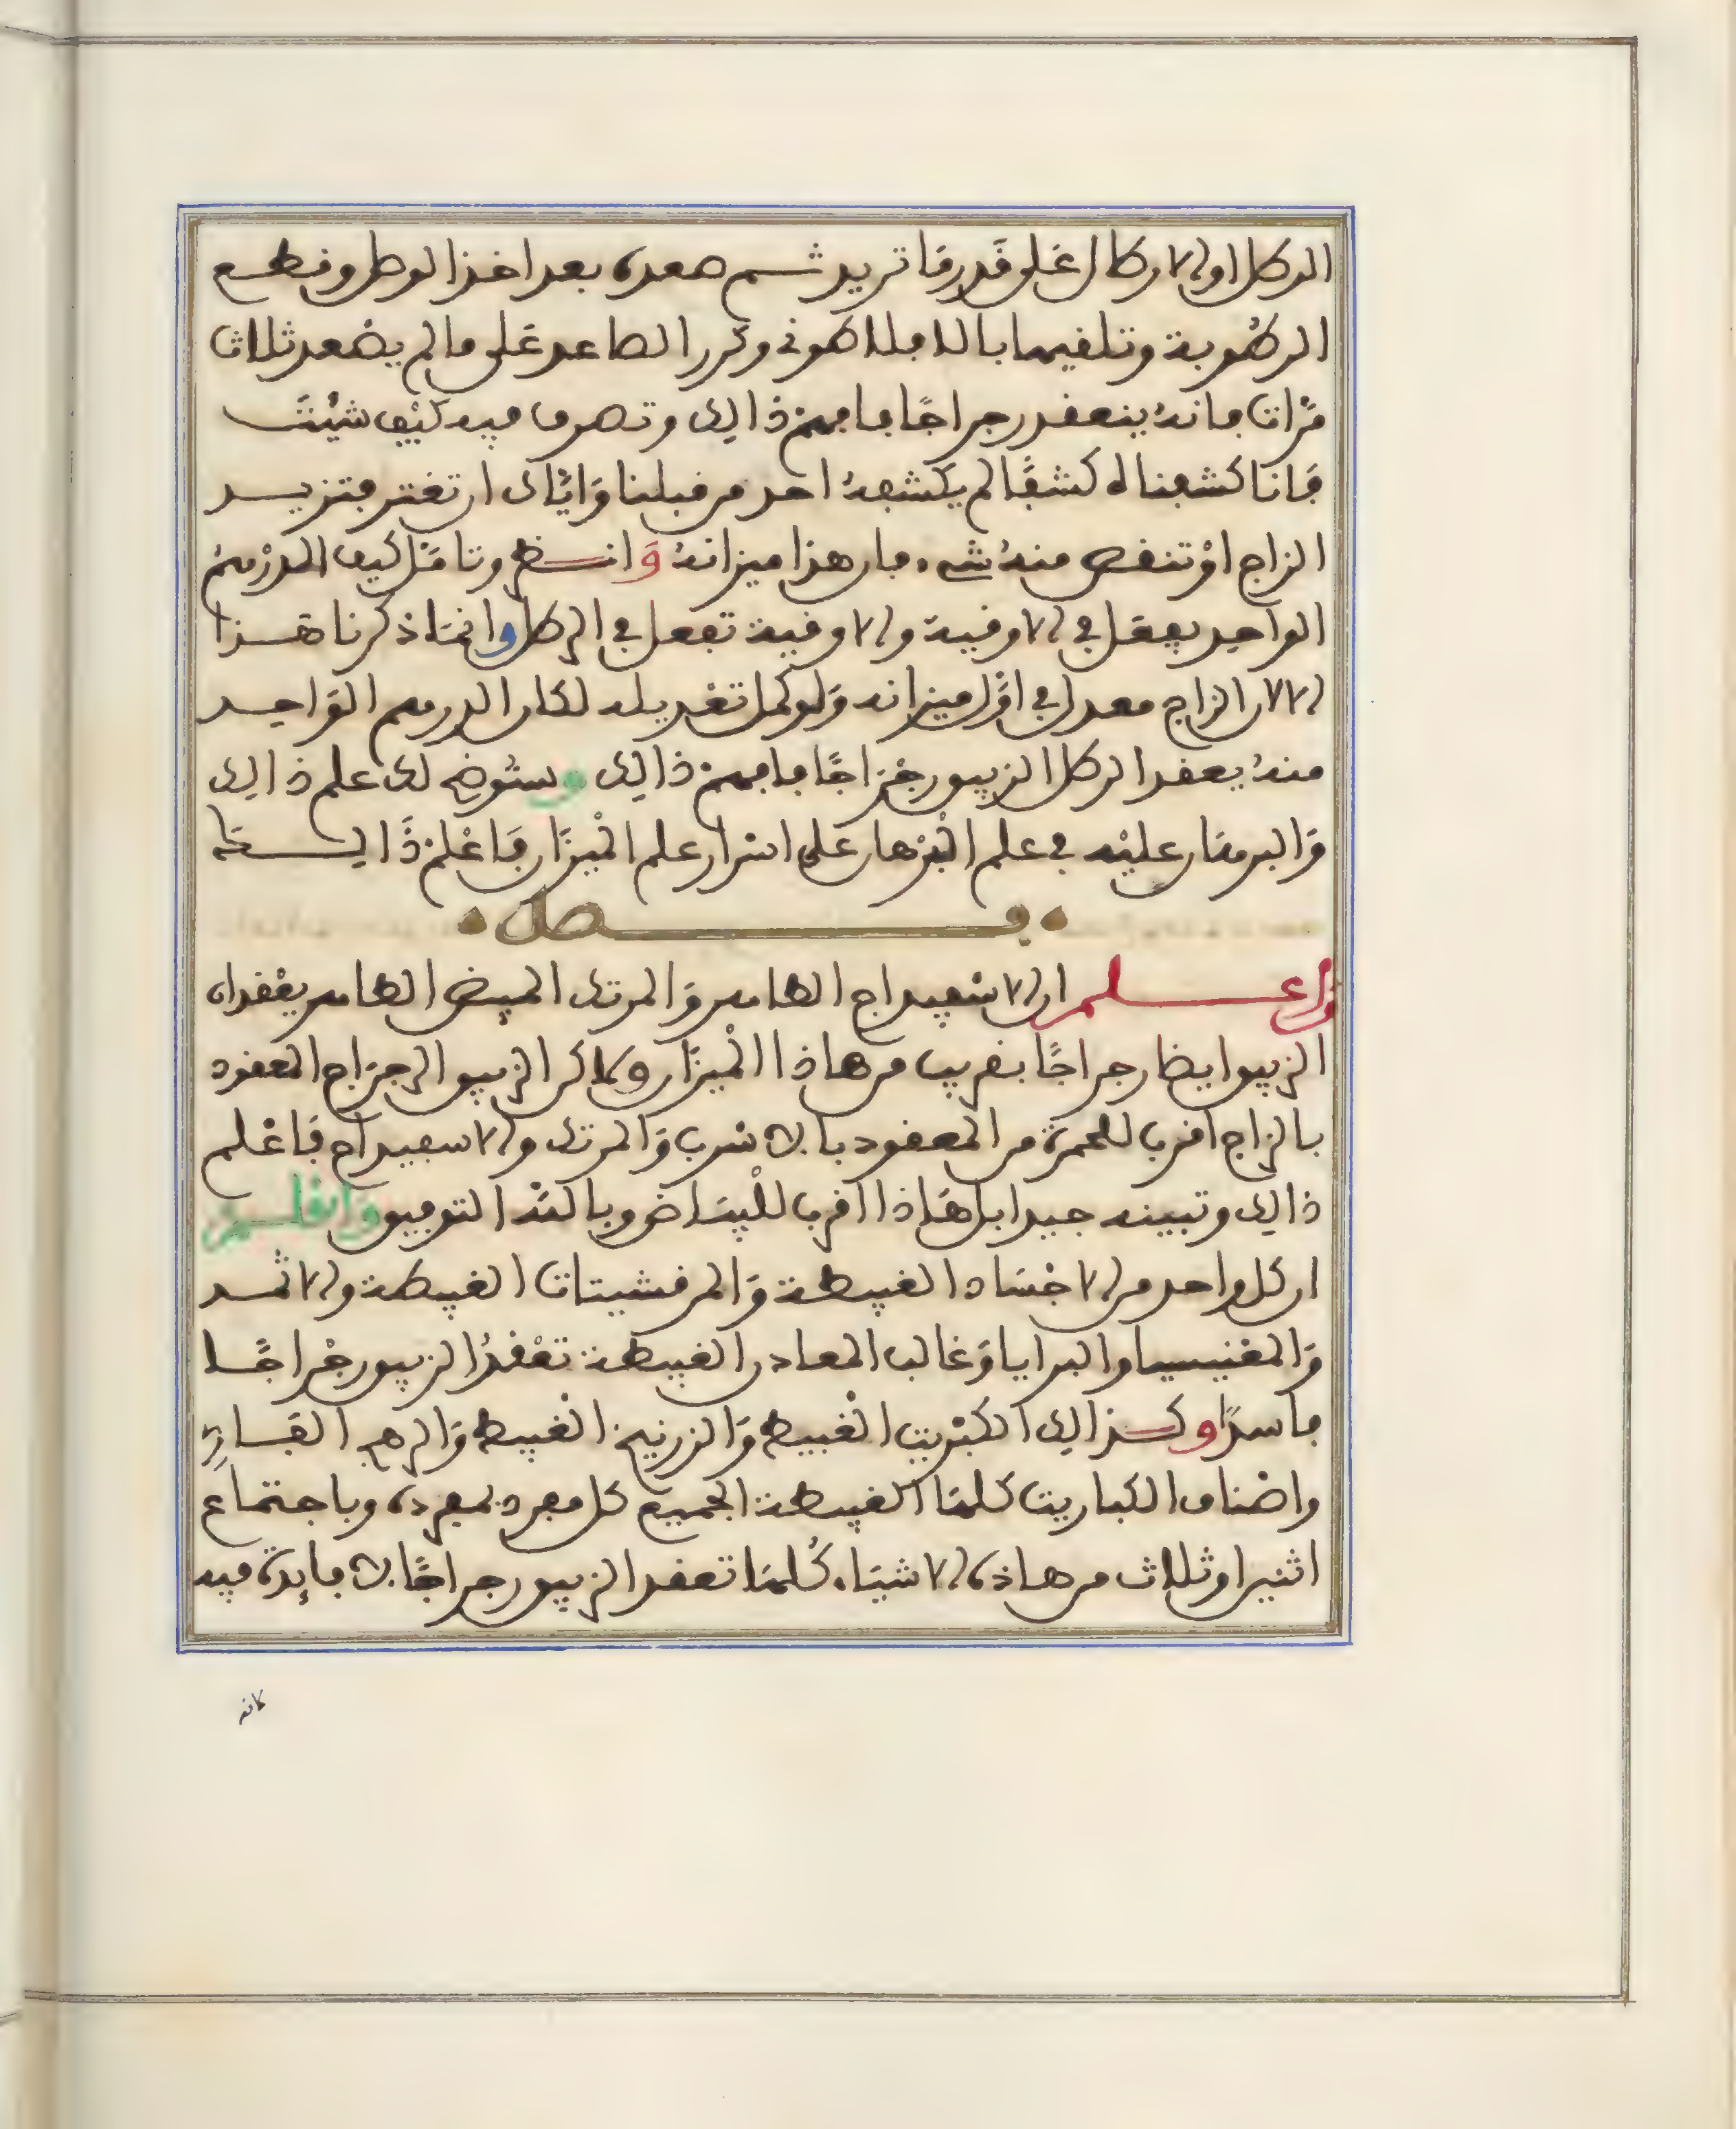 الرطل او الارطال على قدر ما تريد ثم صعده بعد اخذ الوصل وقطع
الرطوبة وتلقيها بالاملاطوني وكرر الصاعد على ما لم يصعد ثلاث
مرات فانه ينعقد رجراجا فافهم ذالك وتصرف فيه كيف شيئت
فانا كشفناه كشفا لم يكشفه احد من قبلنا واياك ان تغتر فتزيد
الزاج او تنقص منه شيء فان هذا ميزانه وانظر وتامل كيف الدرهم
الواحد يفعل في الاوقية والاوقية تفعل في الرطل وانما ذكرنا هذا
لان الزاج معدل في اول ميزانه ولو كمل تعديله لكان الدرهم الواحد
منه يعقد الرطل الزيبق رجراجا فافهم ذالك وسنوضح لك علم ذالك
والبرهان عليه في علم البرهان على اسرار علم الميزان فاعلم ذالك
فصل
واعلم ان الاسفيداج الطاهر والمرتك المبيض الطاهر يعقدان
الزيبق ايضا رجراجا بقريب من هاذا الميزان ولاكن الزيبق الرجراج المعقود
بالزاج اقرب للحمرة من المعقود بالاسرب والمرتك والاسفيداج فاعلم
ذالك وتبينه جيدا بل هاذا اقرب للبياض وبالله التوفيق واعلم
ان كل واحد من الاجساد الغبيطة والمرقشيتات الغبيطة والاثمد
والمغنيسيا والبرايا وغالب المعادن الغبيطة تعقد الزيبق رجراجا
فاسدا وكذالك الكبريت الغبيط والزرنيخ الغبيط والرهج الفار
واصناف الكباريت كلها الغبيطة الجميع كل مفرد بمفرده وباجتماع
اثنين او ثلاث من هاذه الاشياء كلها تعقد الزيبق رجراجا لا فايدة فيه
لانه